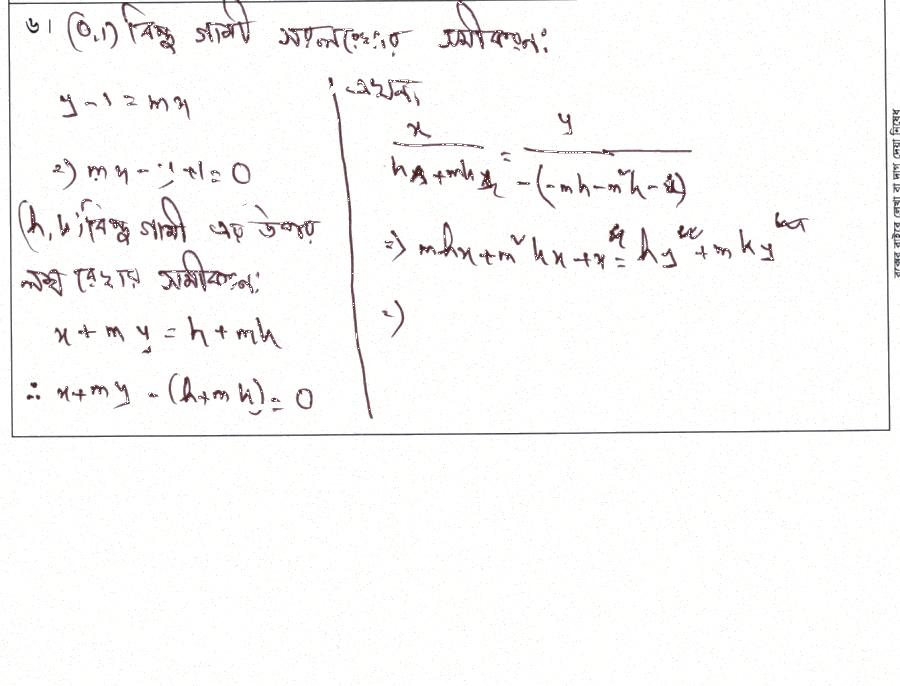 ৬। (0,1) বিন্দু গামী সরলরেখার সমীকরণ:
y - 1 = mx
⇒ mx - y + 1 = 0
(h, k) বিন্দু গামী এর উপর
লম্ব রেখার সমীকরণ:
x + my = h + mk
∴ x + my - (h + mk) = 0
এখন,
x / (h + mk) = y / -(-mh - m²k - 1)
⇒ mhx + m²kx + x = hy + mky
⇒)
বক্সের বাইরে লেখা বা দাগ দেয়া নিষেধ